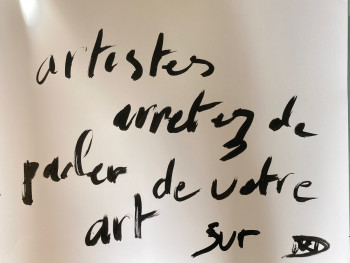 artistes
arretez de
parler de votre
art sur